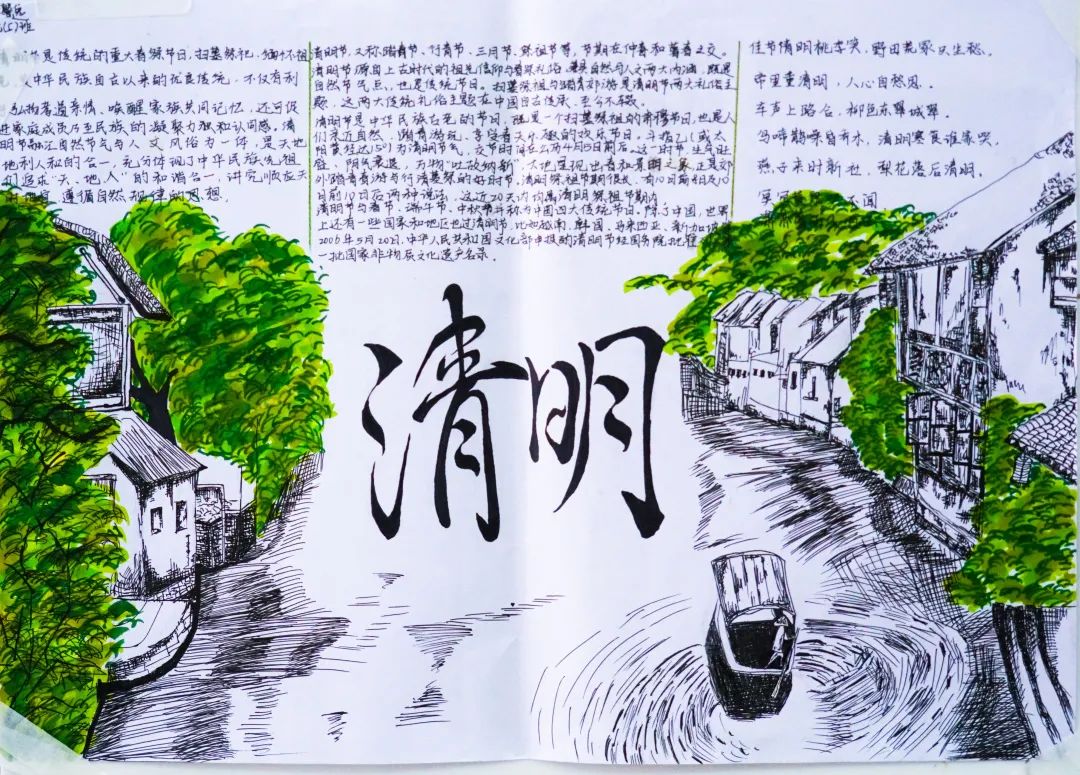 (5)班
清明节是传统的重大春祭节日,扫墓祭祀、缅怀祖
先,是中华民族自古以来的优良传统,不仅有利
弘扬孝道亲情、唤醒家族共同记忆,还可促
进家庭成员乃至民族的凝聚力和认同感。清
明节融汇自然节气与人文风俗为一体,是天地
地利人和的合一,充分体现了中华民族先祖
们追求"天、地、人"的和谐合一,讲究顺应天
时地宜、遵循自然规律的思想。
清明节,又称踏青节、行清节、三月节、祭祖节等,节期在仲春和暮春之交。
清明节源自上古时代的祖先信仰与春祭礼俗,兼具自然与人文两大内涵,既是
自然节气点,也是传统节日。扫墓祭祖与踏青郊游是清明节两大礼俗主
题,这两大传统礼俗主题在中国自古传承,至今不辍。
清明节是中华民族古老的节日,既是一个扫墓祭祖的肃穆节日,也是人
们亲近自然、踏青游玩、享受春天乐趣的欢乐节日。斗指乙(或太
阳黄经达15°)为清明节气,交节时间在公历4月5日前后。这一时节,生气旺
盛、阴气衰退,万物"吐故纳新",大地呈现出春和景明之象,正是郊
外踏青春游与行清墓祭的好时节。清明祭祖节期很长,有10日前8日后及10
日前10日后两种说法,这近20天内均属清明祭祖节期内。
清明节与春节、端午节、中秋节并称为中国四大传统节日。除了中国,世界
上还有一些国家和地区也过清明节,比如越南、韩国、马来西亚、新加坡
2006年5月20日,中华人民共和国文化部申报的清明节经国务院批准
一批国家非物质文化遗产名录。
佳节清明桃李笑,野田荒冢只生愁。
帝里重清明,人心自愁思。
车声上路合,柳色东城翠。
乌啼鹊噪昏乔木,清明寒食谁家哭。
燕子来时新社,梨花落后清明。
清明